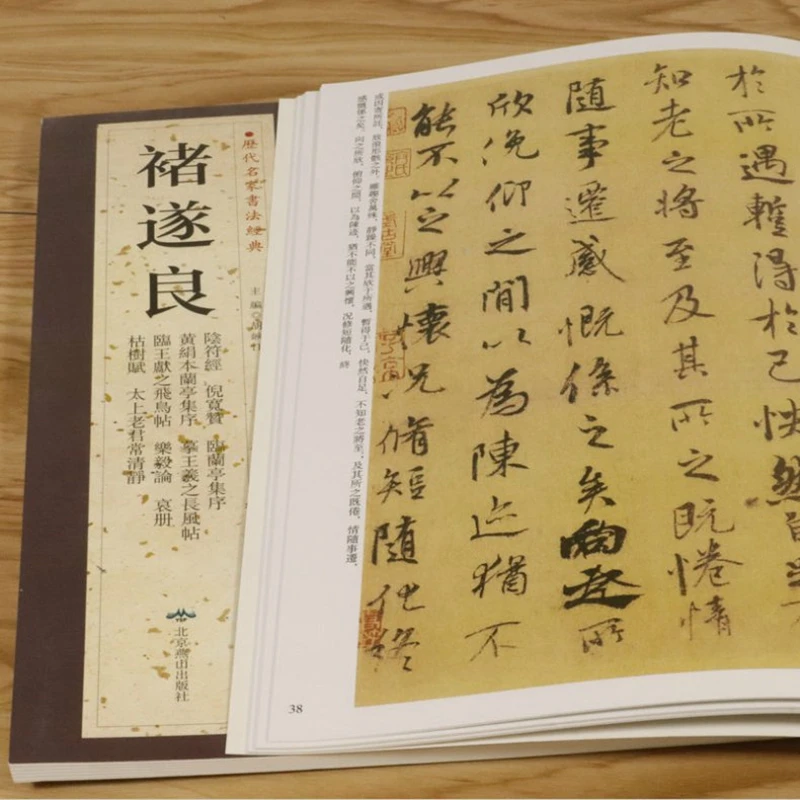 歷代名家書法經典
褚遂良
主編
陰符經 倪寬贊 臨蘭亭集序
黃絹本蘭亭集序 摹王羲之長風帖
臨王獻之飛鳥帖 樂毅論 哀册
枯樹賦 太上老君常清靜
北京燕山出版社
於所遇蹔得於己怏然自
知老之將至及其所之既惓情
隨事遷感慨係之矣向之所
欣俛仰之間以為陳迹猶不
能不以之興懷況脩短隨化終
或因寄所託,放浪形骸之外。雖趣舍萬殊,靜躁不同,當其欣于所遇,暫得于己,快然自足,不知老之將至,及其所之既倦,情隨事遷,
感慨係之矣。向之所欣,俯仰之間,以為陳迹,猶不能不以之興懷,況修短隨化,終
38